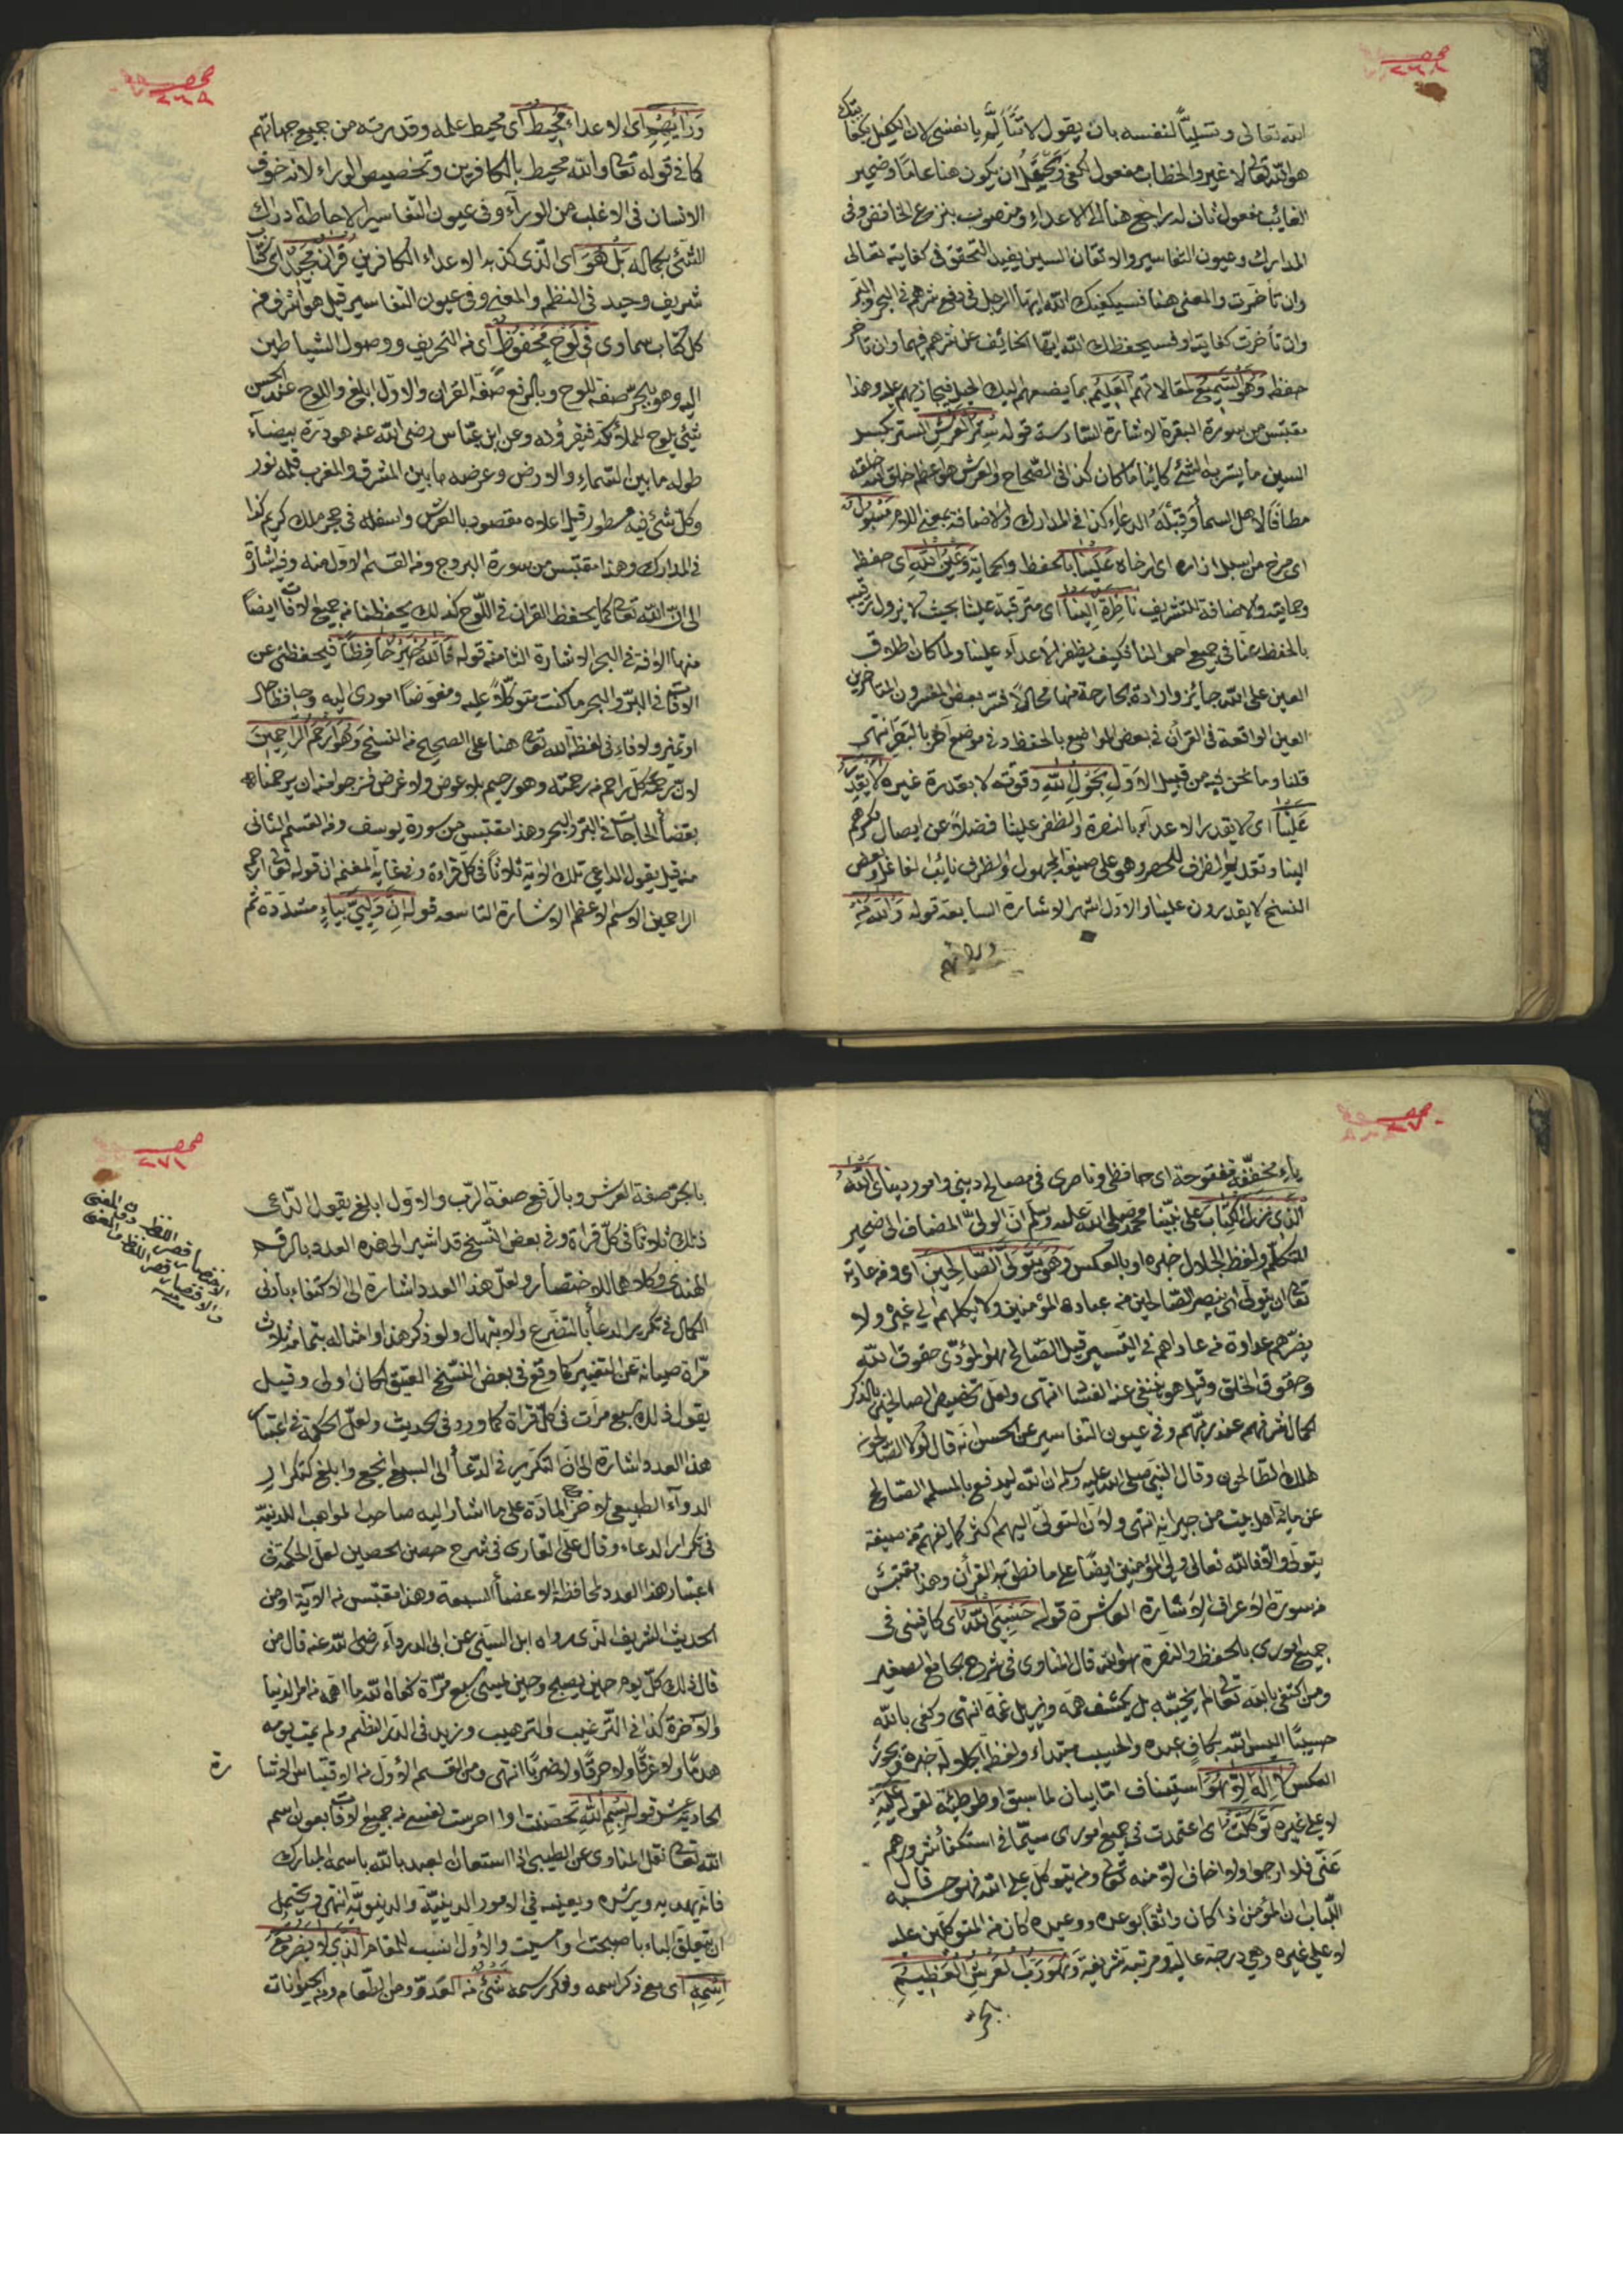 صحـ
٢٦٨
الله تعالى وتسليًا لنفسه بان يقول لا تتألم يا نفسى لان الكفيل بكفايتك
هو الله تعالى لا غير والخطاب مفعول لكفى ويحتمل ان يكون هنا عاما وضمير
الغائب مفعول ثان له راجع هنا الى الاعداء ومنصوب بنزع الخافض وفى
المدارك وعيون التفاسير والاتقان السين يفيد التحقق فى كفايته تعالى
وان تأخرت والمعنى هنا فسيكفيك الله ايها الرجل فى دفع شرهم فى البحر والبر
وان تأخرت كفايته او فسيحفظك الله ايها الخائف عن شرهم فيهما وان تأخر
حفظه وهو السميع لمقالاتهم العليم بما يضعهم اليك الحيل فيجازيهم عليه وهذا
مقتبس من سورة البقرة الاشارة السادسة قوله ستر العرش الستر بكسر
السين ما يستر به الشئ كائنا ما كان كذا فى الصحاح والعرش هو اعظم خلق الله خلقه
مطافا لاهل السماء وقبلة الدعاء كذا فى المدارك والاضافة بمعنى اللام مسبول
اى مرخى من اسبل ازاره اى ارخاه علينا بالحفظ والحماية وعين الله اى حفظه
وحمايته والاضافة للتشريف ناظرة الينا اى مترقبة علينا بحيث لا يزول ترقبه
بالحفظ عنا فى جميع احوالنا فكيف يظفر الاعداء علينا ولما كان اطلاق
العين على الله جائز وارادة الجارحة منها محالا فسر بعض المفسرون المتأخرين
العين الواقعة فى القرأن فى بعض المواضع بالحفظ وفى موضع آخر بالبصر انتهى
قلنا وما نحن فيه من قبيل الاول بحول الله وقوته لا بقدرة غيره لا يقدر
علينا اى لا يقدر الاعداء بالنصرة والظفر علينا فضلا عن ايصال مكرهم
الينا وتقديم الظرف للحصر وهو على صيغة المجهول والظرف نائب الفاعل وبعض
النسخ لا يقدرون علينا والاول اشهر الاشارة السابعة قوله والله من
ورائهم
صحـ
٢٦٩
ورائهم اى الاعداء محيط اى محيط علمه وقدرته من جميع جهاتهم
كما فى قوله تعالى والله محيط بالكافرين وتخصيص الوراء لانه خوف
الانسان فى الاغلب من الوراء وفى عيون التفاسير الاحاطة ادراك
الشئ بكماله بل هو اى الذى كذبه الاعداء الكافرين قرآن مجيد اى كتاب
شريف وحيد فى النظم والمعنى وفى عيون التفاسير قيل هو اشرف من
كل كتاب سماوى فى لوح محفوظ اى من التحريف ووصول الشياطين
اليه وهو بالجر صفة للوح وبالرفع صفة القرآن والاول ابلغ واللوح عند الحسن
شئ يلوح للملائكة فيقرؤنه وعن ابن عباس رضى الله عنه هو درة بيضاء
طوله ما بين السماء والارض وعرضه ما بين المشرق والمغرب قلمه نور
وكل شئ فيه مسطور قيل اعلاه معقود بالعرش واسفله فى حجر ملك كريم كذا
فى المدارك وهذا مقتبس من سورة البروج ومن القسم الاول منه وفيه اشارة
الى ان الله تعالى كما يحفظ القرآن فى اللوح كذلك يحفظنا من جميع الافات ايضا
منها الافة فى البحر الاشارة الثامنة قوله فالله خير حافظا فيحفظنى عن
الافات فى البر والبحر ما كنت متوكلا عليه ومفوضا امورى اليه وحافظا حال
او تمييز ولا فاء فى لفظة الله تعالى هنا على الصحيح من النسخ وهو ارحم الراحمين
لان رحمة كل راحم من رحمته وهو رحيم بلا عوض ولا غرض فنرجوا منه ان يرحمنا
بقضاء الحاجات فى البر والبحر وهذا مقتبس من سورة يوسف ومن القسم الثانى
منه قيل يقول الداعى تلك الاية ثلاثا فى كل قراءة وفى غاية المغنم ان قوله تعالى ارحم
الراحمين الاسم الاعظم الاشارة التاسعة قوله ان وليي بياء مشددة ثم
صحـ
٢٧٠
ياء مخففة مفتوحة اى حافظى وناصرى فى مصالح دينى وامور دنياى الله
الذى نزل الكتاب على نبينا محمد صلى الله عليه وسلم ان الولى المضاف الى ضمير
المتكلم ولفظ الجلال خبره او بالعكس وهو يتولى الصالحين اى ومن عادته
تعالى ان يتولى اى ينصر الصالحين من عباده المؤمنين ولا يكلهم الى غيره ولا
يضرهم عداوة من عاداهم فى التيسير قيل الصالح هو المؤدى حقوق الله
وحقوق الخلق وقيل هو ينفى عنه الفساد انتهى ولعل تخصيص الصالحين بالذكر
لكمال شرفهم عند ربهم وفى عيون التفاسير عن الحسن انه قال لولا الصالحون
لهلك الطالحون وقال النبى صلى الله عليه وسلم ان الله ليدفع بالمسلم الصالح
عن مائة اهل بيت من جيرانه انتهى ولان التولى اليهم اكثر كما يفهم من صيغة
يتولى والا فالله تعالى ولى المؤمنين ايضا على ما نطق به القرأن وهذا مقتبس
من سورة الاعراف الاشارة العاشرة قوله حسبى الله اى كافينى فى
جميع امورى بالحفظ والنصرة هو الله قال المناوى فى شرح الجامع الصغير
ومن اكتفى بالله تعالى لم يخيبه بل يكشف همه ويزيل غمه انتهى وكفى بالله
حسيبا اليس الله بكاف عبده والحسيب مبتداء ولفظة الجلالة خبره ويجوز
العكس لا اله الا هو استيناف اما بيان لما سبق او طوطئة لقوله عليه
لا على غيره توكلت اى اعتمدت فى جميع امورى سيما فى استكفاء شرورهم
عنى فلا ارجوا ولا اخاف الا منه تعالى ومن يتوكل على الله فهو حسبه قال
اللباب ان المؤمن اذا كان واثقا بوعده ووعيده كان من المتوكلين عليه
لا على غيره وهى درجة عالية ومرتبة شريفة وهو رب العرش العظيم
بالجر
صحـ
٢٧١
بالجر صفة العرش وبالرفع صفة الرب والاول ابلغ يقول الداعى
ذلك ثلاثا فى كل قراءة وفى بعض النسخ قد اشير الى هذه العدد بالرقم
الهندى وكلاهما للاختصار ولعل هذا العدد اشارة الى الاكتفاء بأدنى
الكمال فى تكرير الدعاء بالتضرع والابتهال ولو ذكر هذا وامثاله بتمامه ثلاث
مرات صيانة عن التغيير كما وقع فى بعض النسخ العتيق لكان اولى وقيل
يقول ذلك سبع مرات فى كل قراءة كما ورد فى الحديث ولعل الحكمة فى اعتبار
هذا العدد اشارة الى ان التكرير فى الدعاء الى السبع انجع وابلغ كتكرار
الدواء الطبيعى لاخراج المادة على ما اشار اليه صاحب المواهب اللدنية
فى تكرار الدعاء وقال على القارى فى شرح حصن الحصين لعل الحكمة فى
اعتبار هذا العدد لمحافظة الاعضاء السبعة وهذا مقتبس من الآية او من
الحديث الشريف الذى رواه ابن السنى عن ابى الدرداء رضى الله عنه قال من
قال ذلك كل يوم حين يصبح وحين يمسى سبع مرات كفاه الله ما اهمه من امر الدنيا
والآخرة كذا فى الترغيب والترهيب وزيد فى الدر النظيم ولم يمت يومه
هدما ولا غرقا ولا حرقا ولا ضربا انتهى ومن القسم الاول من الاقتباس الاشا
رة
الحادية عشر قوله بسم الله تحصنت او احرست نفسى من جميع الافات بعون اسم
الله تعالى نقل المناوى عن الطيبى اذا استعان العبد بالله باسمه المبارك
فانه يهديه ويرشده ويعينه فى الامور الدينية والدنيوية انتهى ويحتمل
ان يتعلق الباء باصبحت او امسيت والاول انسب للمقام الذى لا يضر مع
اسمه اى مع ذكر اسمه وذكر رسمه شئ من العدو ومن الطعام ومن الحيوانات
الاختصار قصر اللفظ دون المعنى
والاقتصار قصر اللفظ والمعنى